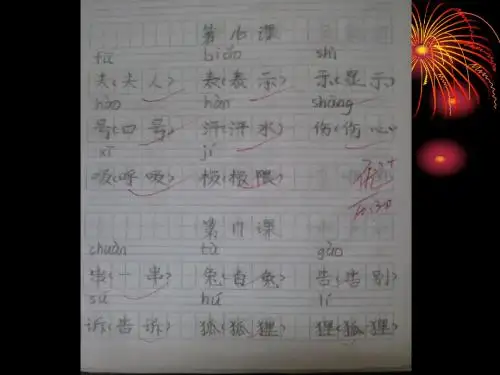 第16课
fū biǎo shì
夫(夫人) 表(表示) 示(显示)
hào hàn shāng
号(口号) 汗(汗水) 伤(伤心)
xī jí
吸(呼吸) 极(极限)
第17课
chuàn tù gào
串(一串) 兔(白兔) 告(告别)
sù hú lí
诉(告诉) 狐(狐狸) 狸(狐狸)